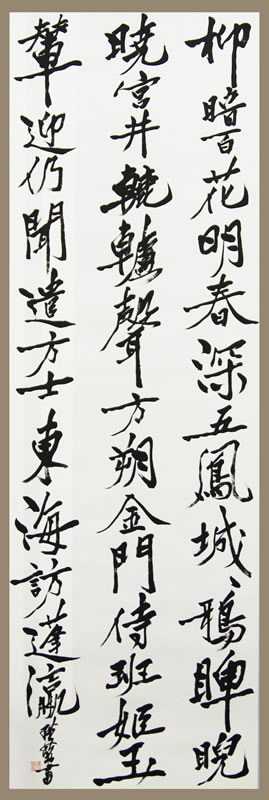 柳暗百花明春深五鳳城、鴉睥睨
暁宮井轆轤聲方朔金門侍班姬玉
輦迎仍聞遣方士東海訪蓬瀛